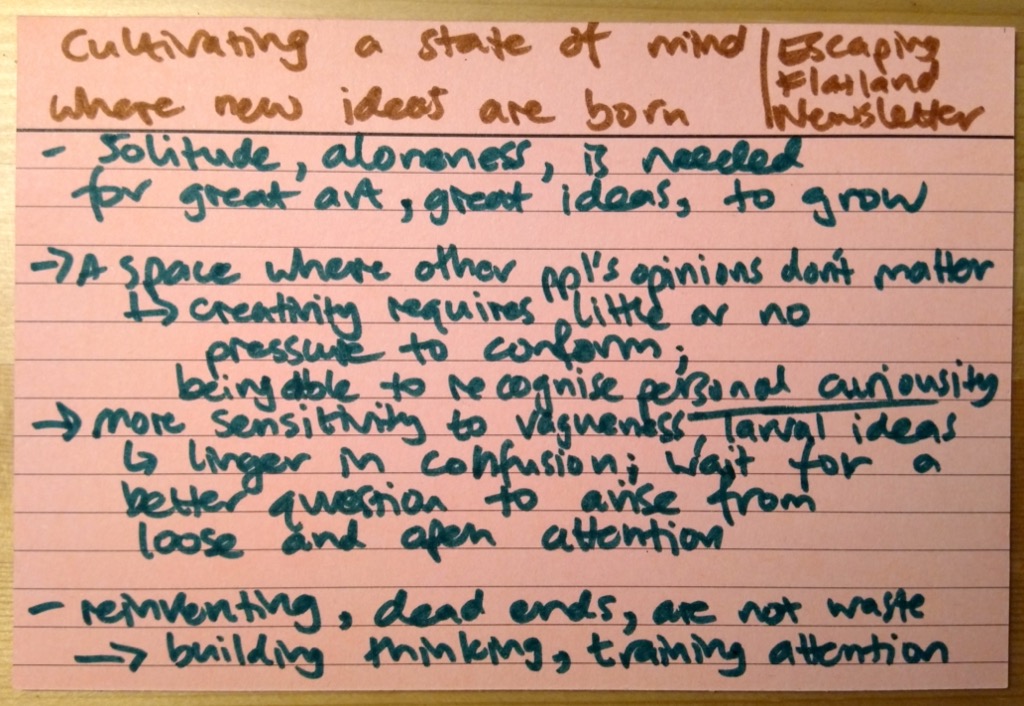 Cultivating a state of mind
where new ideas are born
Escaping
Flatland
Newsletter
- Solitude, aloneness, is needed
for great art, great ideas, to grow
→ A space where other ppl's opinions don't matter
↳ creativity requires little or no
pressure to conform;
being able to recognise personal curiousity
→ more sensitivity to vagueness larval ideas
↳ linger in confusion; wait for a
better question to arise from
loose and open attention
- reinventing, dead ends, are not waste
→ building thinking, training attention